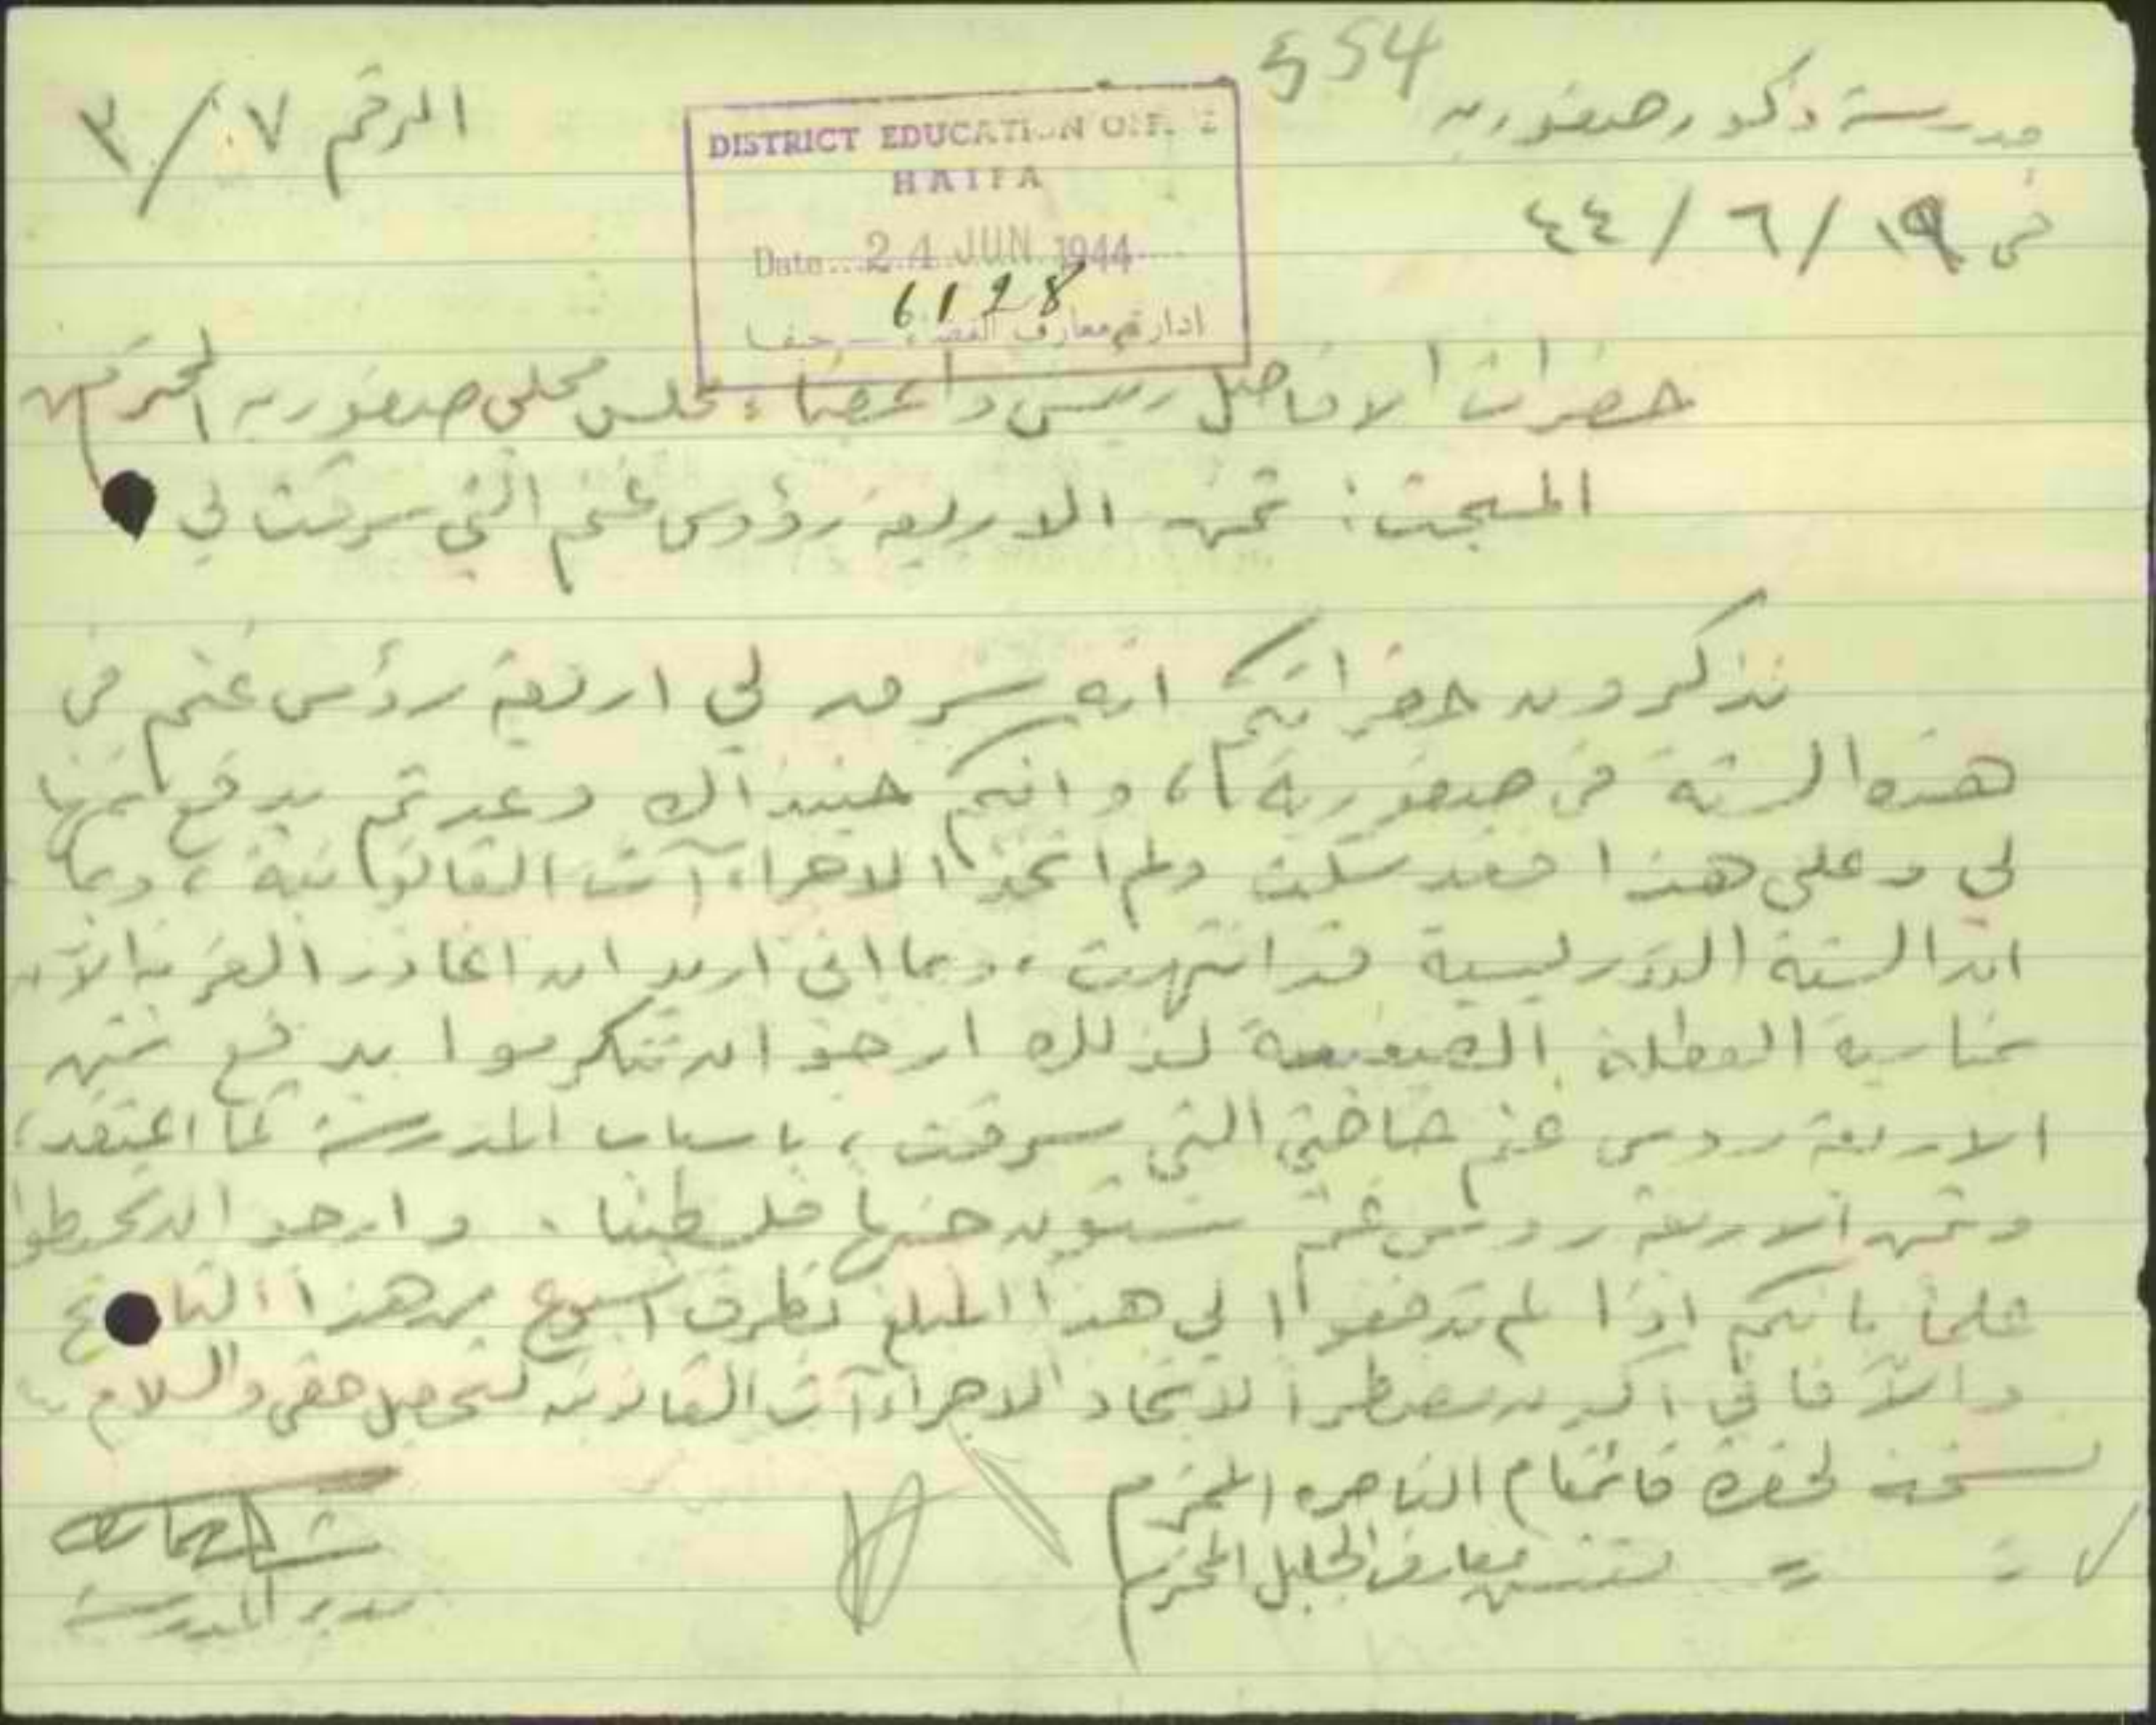 554
مدرسة ذكور صفوريه
الرقم ٧/٣
في ١٩/٦/٤٤
DISTRICT EDUCATION OFFICE
HAIFA
Date...24 JUN 1944
6128
ادارة معارف القضاء – حيفا
حضرات الافاضل رئيس واعضاء مجلس محلي صفوريه المحترمين
المبحث: ثمن الاربعة رؤوس غنم التي سرقت لي
تذكرون حضراتكم انه سرق لي اربعة رؤس غنم في
هذه السنة في صفورية، وانكم حينذاك وعدتم بدفع ثمنها
لي وعلى هذا فقد سكت ولم اتخذ الاجراءآت القانونية، وبما
ان السنة التدريسية قد انتهت، وبما اني اريد ان اغادر القرية الآن
بمناسبة العطلة الصيفية لذلك ارجو ان تتكرموا بدفع ثمن
الاربعة روس غنم خاصتي التي سرقت، باسباب المدرسة كما اعتقد،
وثمن الاربعة روس غنم ستون جنيها فلسطينا. وارجو ان تحيطوا
علما بانكم اذا لم تدفعوا لي هذا المبلغ بظرف اسبوع من هذا التاريخ
والآ فاني اكون مضطرا لاتخاذ الاجراءآت القانونية لتحصيل حقي والسلام
نسخة لحضرة قائمقام الناصره المحترم
= = مفتش معارف الجليل المحترم
مدير المدرسة